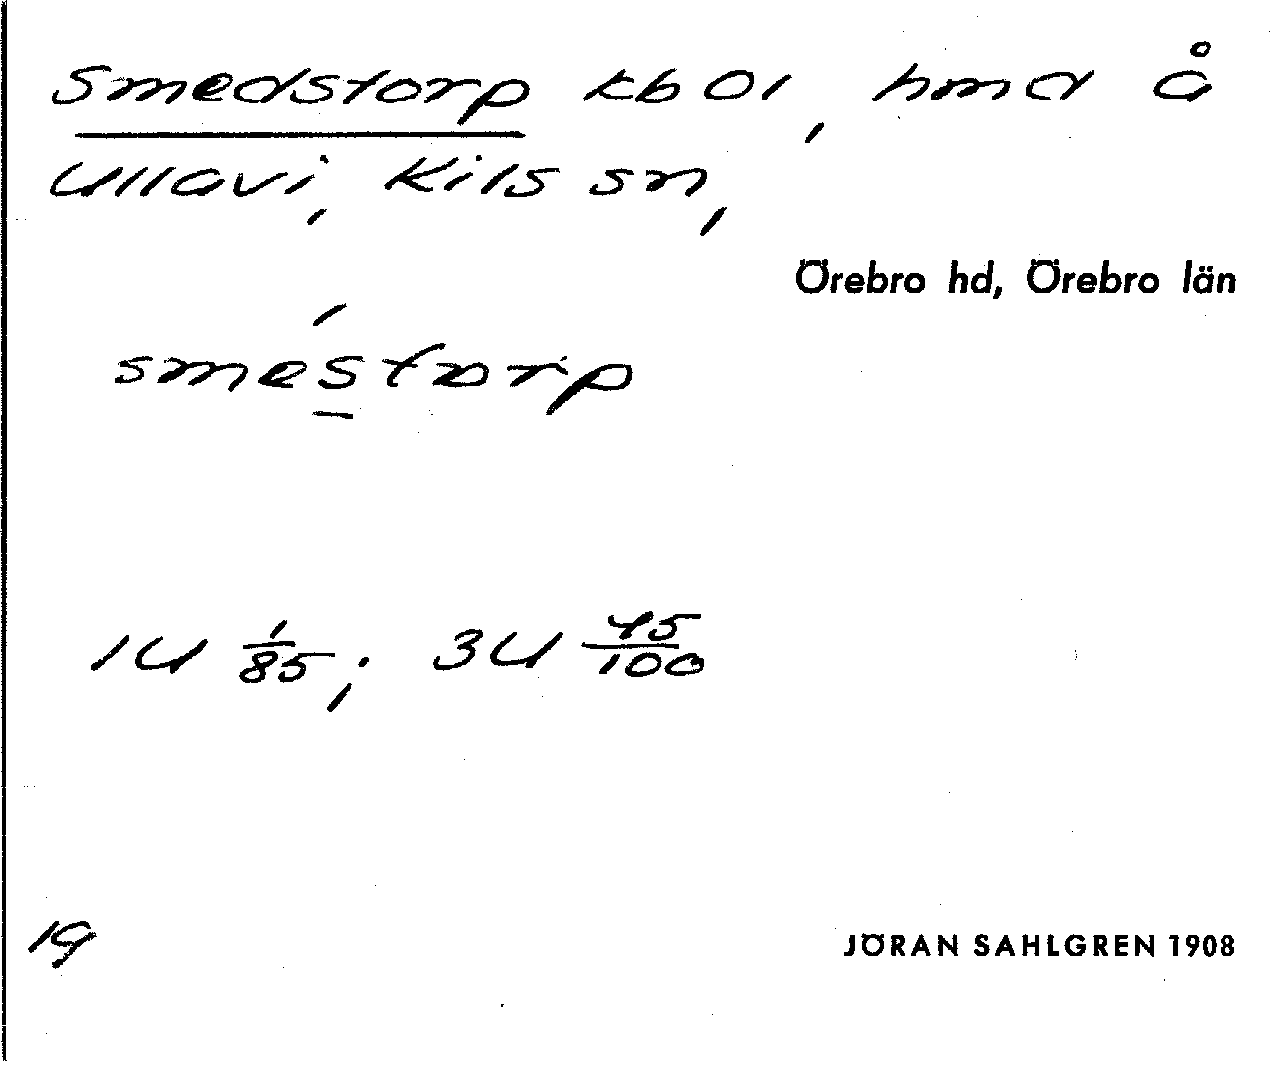 Smedstorp kb 01, hmd å
Ullavi, Kils sn,
Örebro hd, Örebro län
smèstorp
1U 1/85; 3U 45/100
19
JÖRAN SAHLGREN 1908